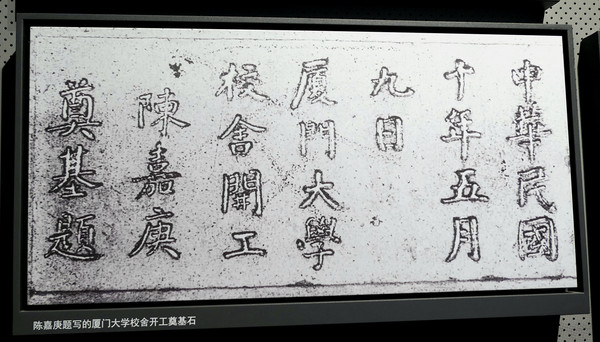 中華民國
十年五月
九日
厦門大學
校舍開工
陳嘉庚
奠基題
陈嘉庚题写的厦门大学校舍开工奠基石